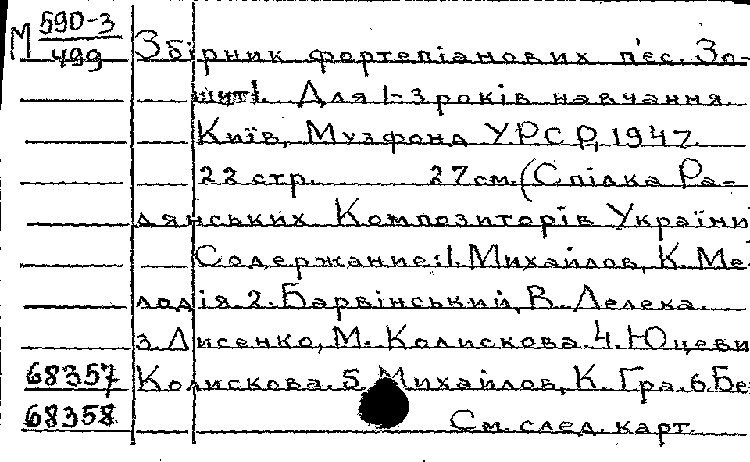 М 590-3
499
Збірник фортепіанових п'єс. Зо-
шит І. Для 1-3 років навчання.
Київ, Музфонд У.Р.С.Р, 1947.
22 стр. 27 см. (Спілка Ра-
дянських Композиторів України)
Содержание: 1. Михайлов, К. Ме-
лодія. 2. Барвінський, В. Лелека.
3. Лисенко, М. Колискова. 4. Юцеви
68357 Колискова. 5. Михайлов, К. Гра. 6. Бе
68358 См. след. карт.